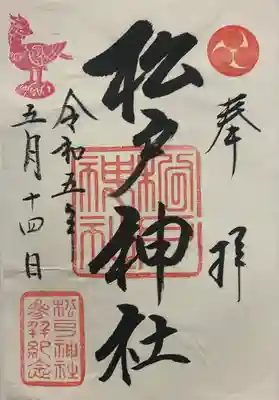 奉拝
松戸神社
令和五年
五月十四日
松戸神社
松戸神社
参拝紀念